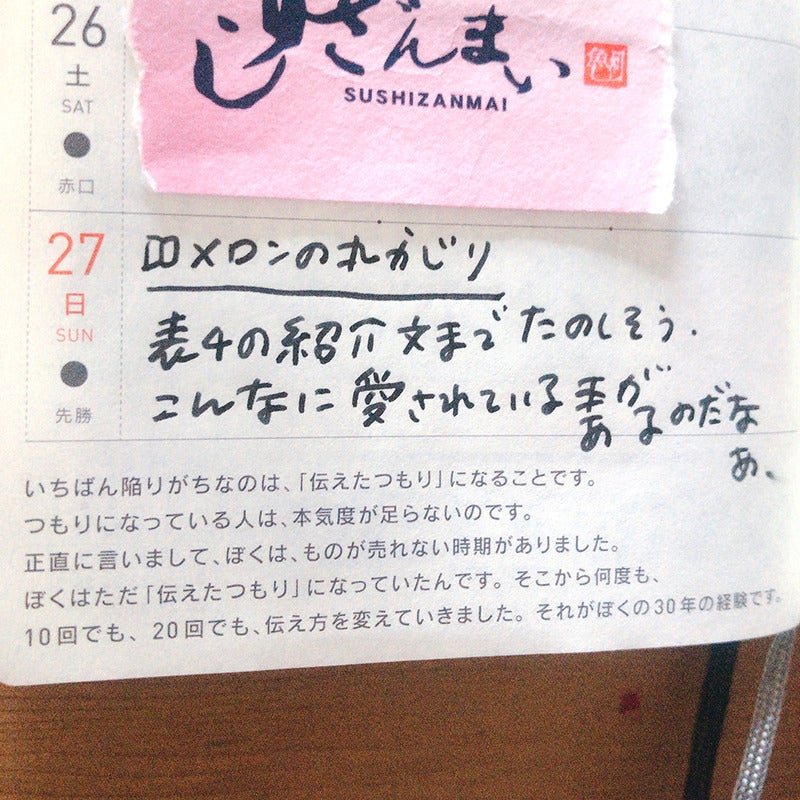 26
土
SAT
赤口
ざんまい
SUSHIZANMAI
27
日
SUN
先勝
メロンの丸かじり
表4の紹介文までたのしそう.
こんなに愛されているがあるのだな
あ、
いちばん陥りがちなのは、「伝えたつもり」になることです。
つもりになっている人は、本気度が足らないのです。
正直に言いまして、ぼくは、ものが売れない時期がありました。
ぼくはただ「伝えたつもり」になっていたんです。そこから何度も、
10回でも、20回でも、伝え方を変えていきました。それがぼくの30年の経験です。